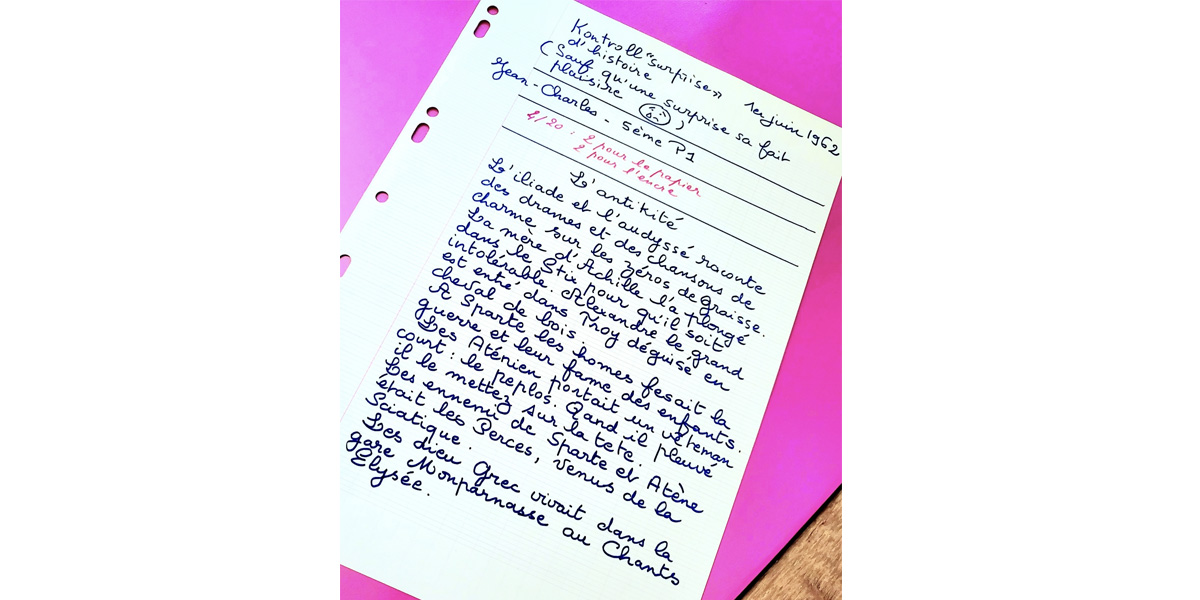 Kontroll "surprise" 1er juin 1962
d'histoire
(Sauf qu'une surprise sa fait
plaisire )
Jean-Charles - 5ème P1
4/20 : 2 pour le papier
2 pour l'encre
L'antikité
L'iliade et l'audyssé raconte
des drames et des chansons de
charme sur les zéros de graisse.
La mère d'Achille l'a plongé
dans le Stix pour qu'il soit
intolérable. Alexandre le grand
est entré dans Troy déguisé en
cheval de bois.
A Sparte les homes fesait la
guerre et leur fame des enfants.
Les Aténien portait un vêteman
court : le peplos. Quand il pleuvé
il le mettez sur la tete.
Les ennemi de Sparte et Atène
était les Perces, venus de la
Sciatique.
Les dieu Grec vivait dans la
gare Monparnasse au Chants
Elysée.